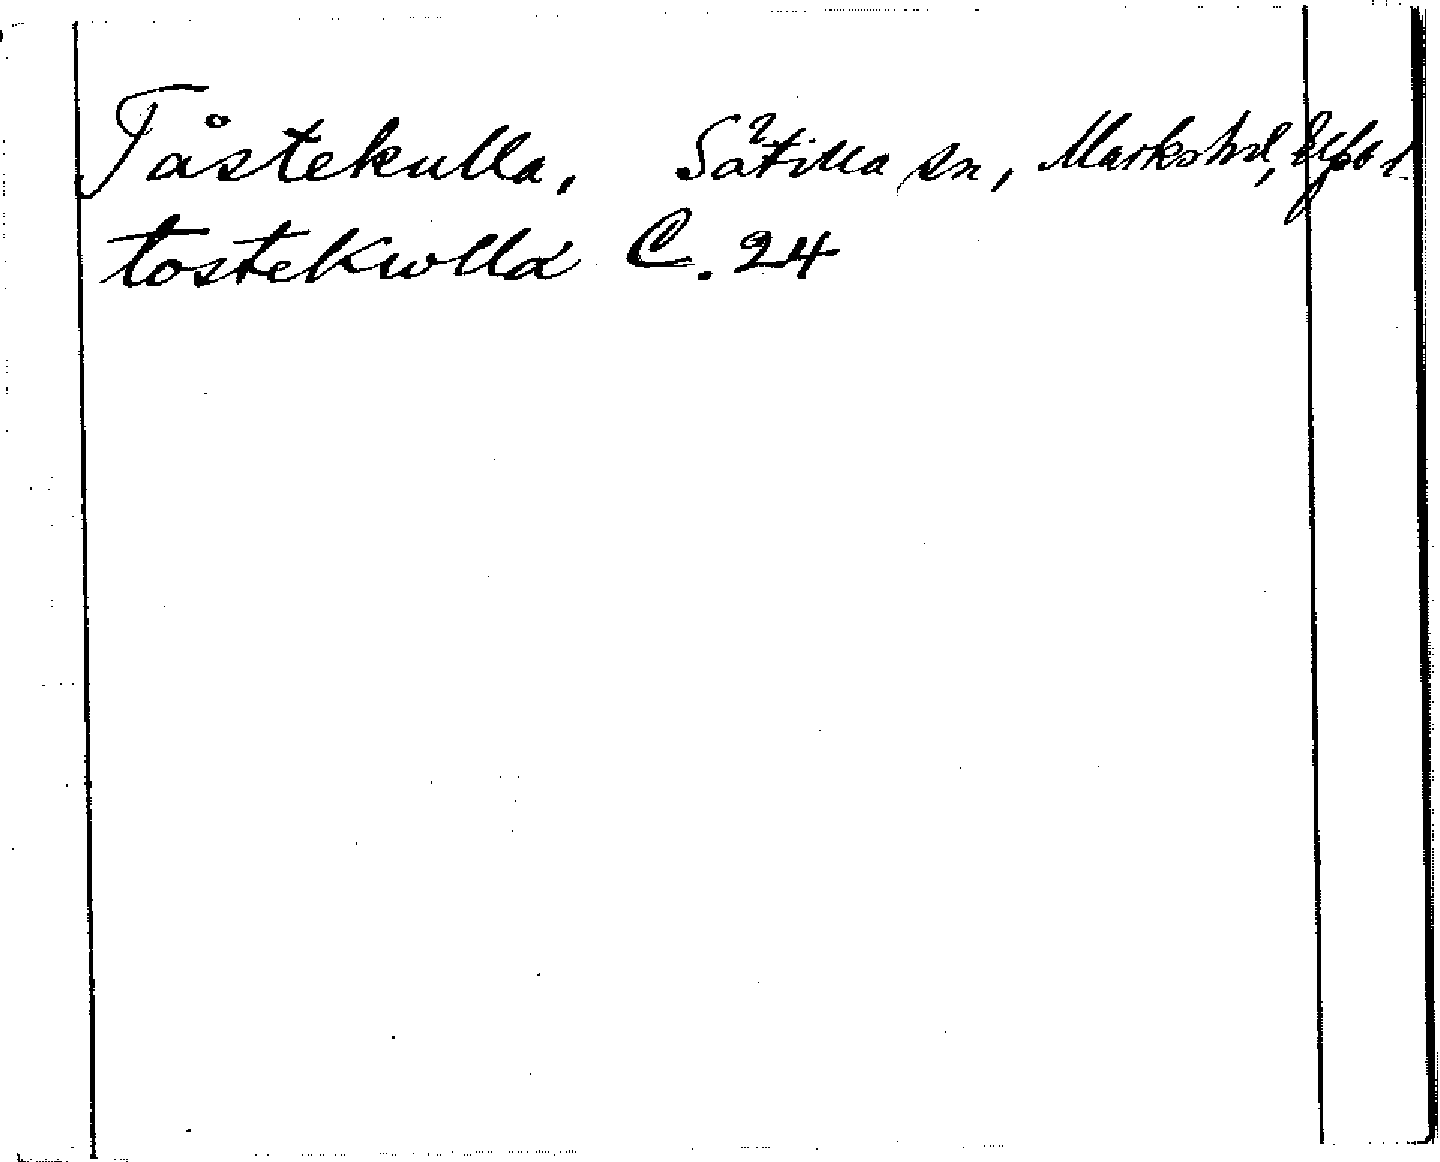 Tåstekulla, Sätilla sn, Markshd, Elfsb l.
tostekwlla C. 24